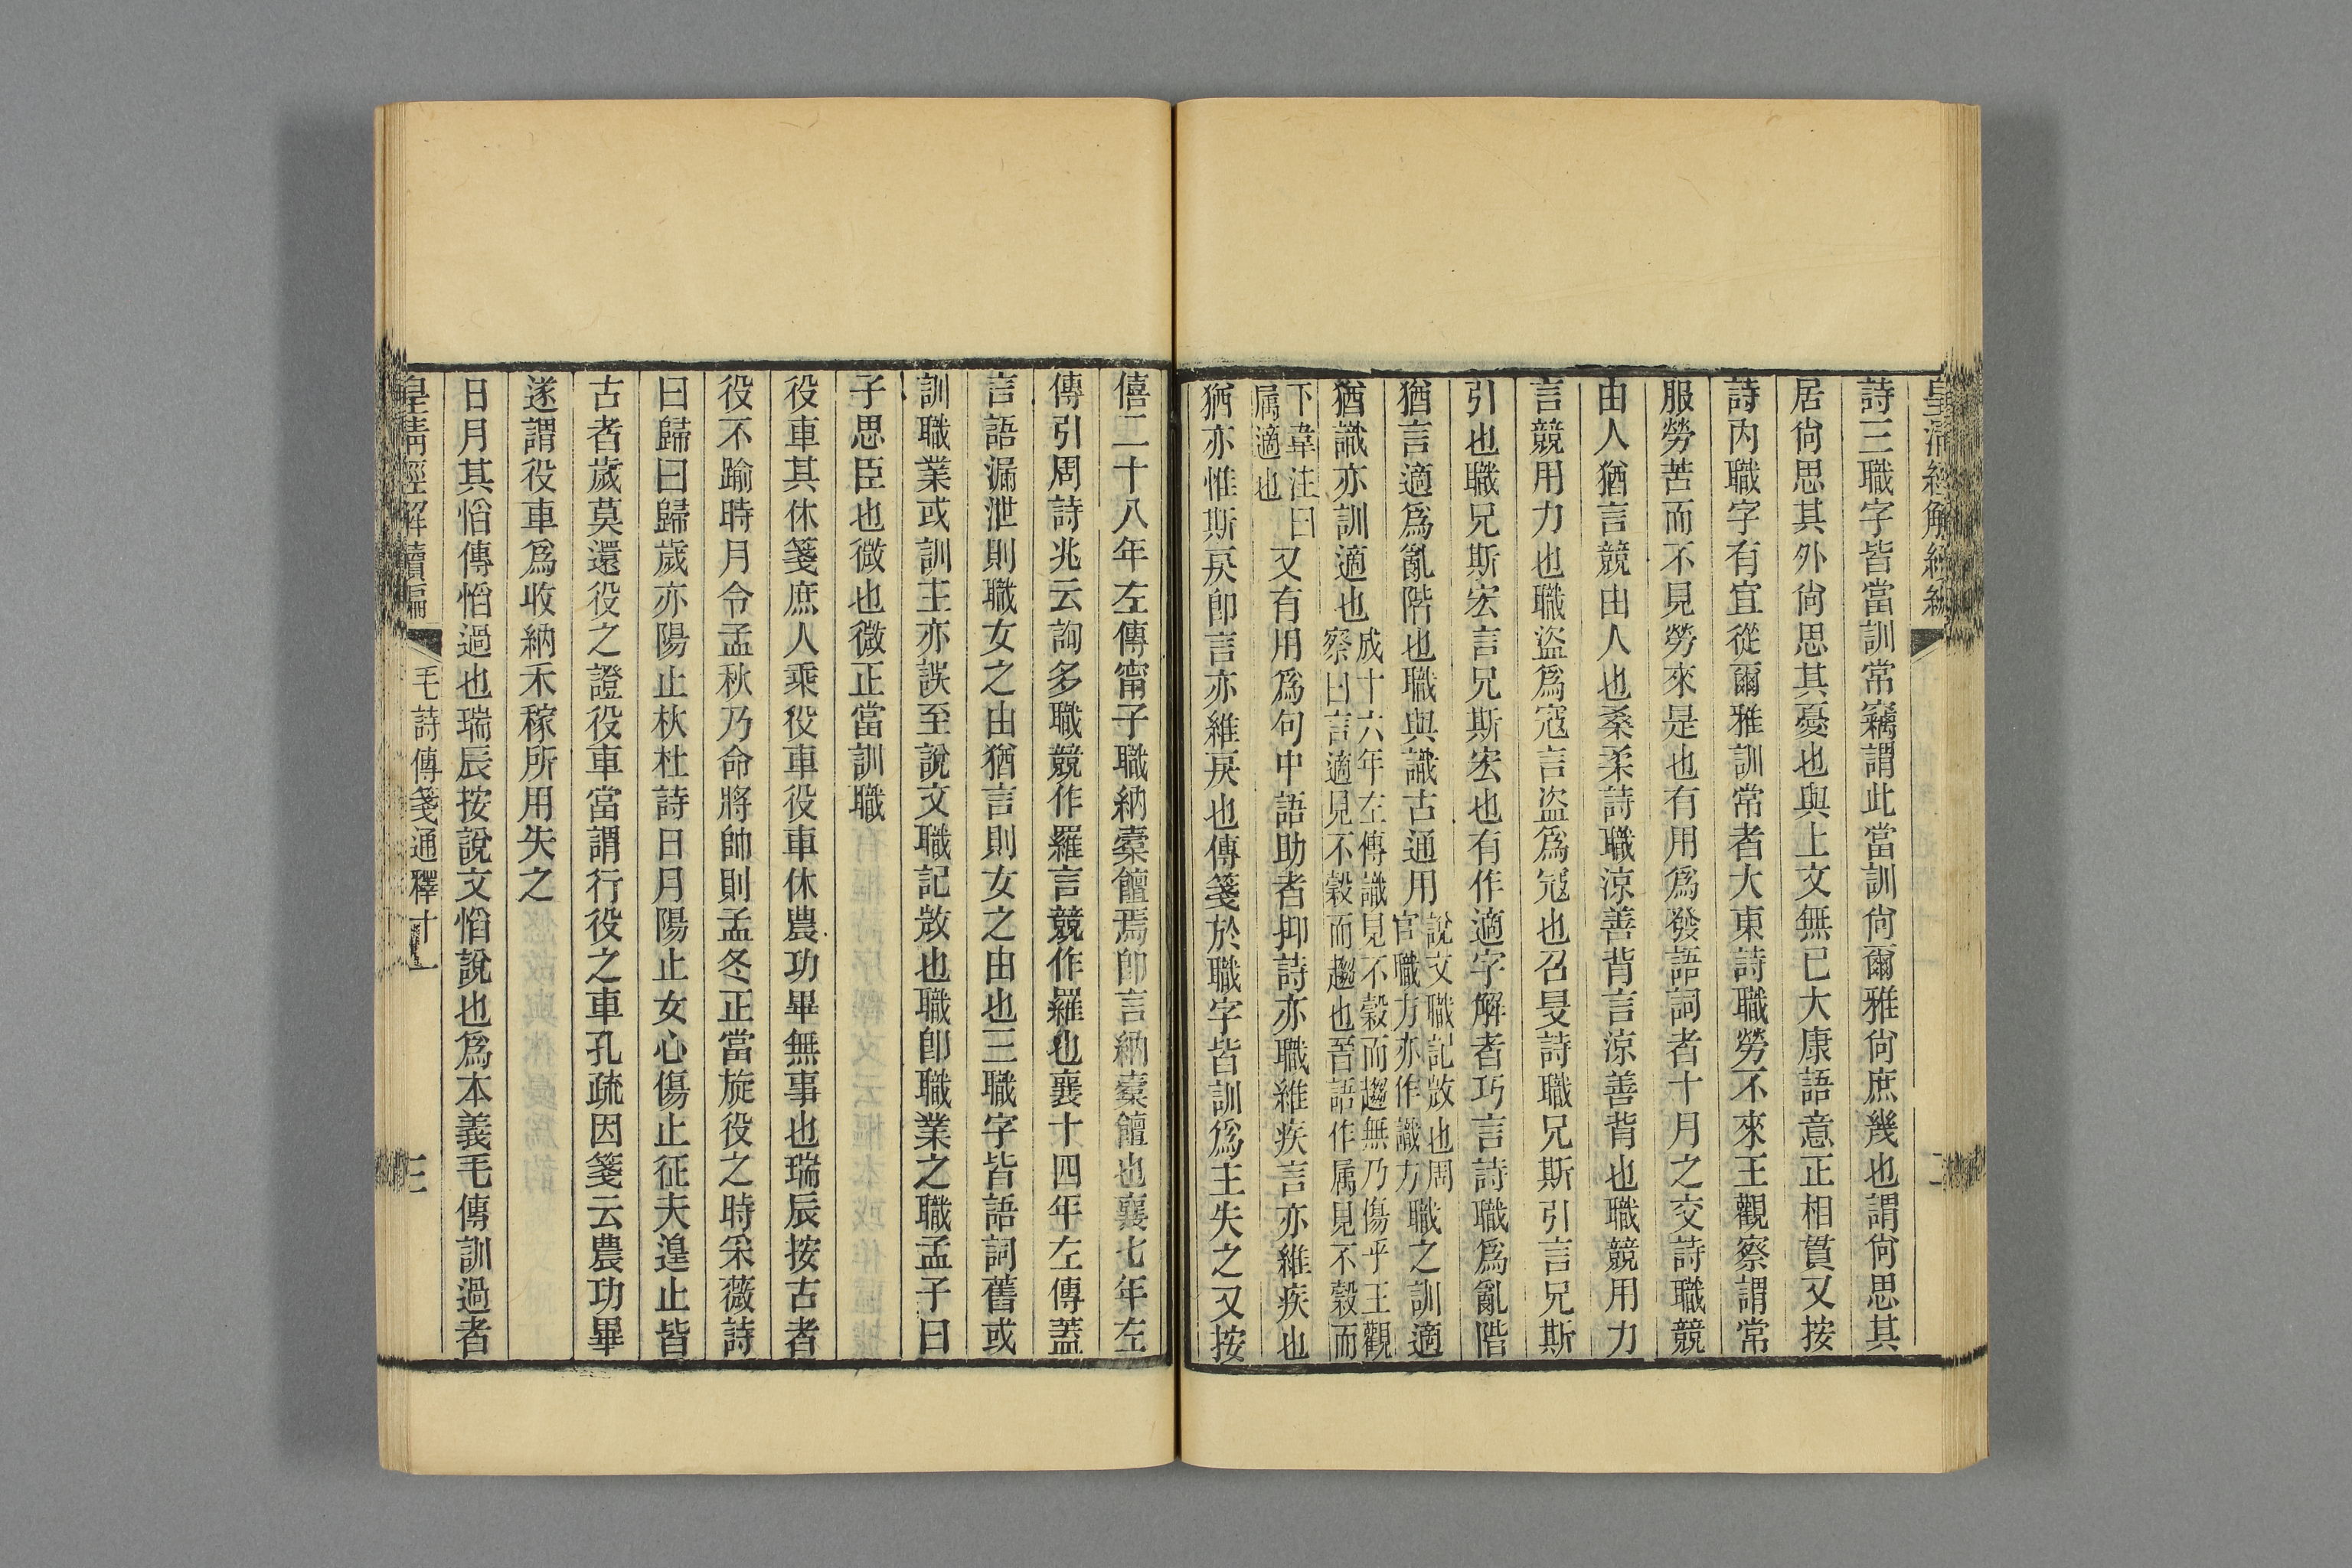 皇清經解續編
詩三職字皆當訓常竊謂此當訓尙爾雅尙庶幾也謂尙思其
居尙思其外尙思其憂也與上文無已大康語意正相貫又按
詩內職字有宜從爾雅訓常者大東詩職勞不來王觀察謂常
服勞苦而不見勞來是也有用爲發語詞者十月之交詩職競
由人猶言競由人也桑柔詩職涼善背言涼善背也職競用力
言競用力也職盜爲寇言盜爲寇也召旻詩職兄斯引言兄斯
引也職兄斯宏言兄斯宏也有作適字解者巧言詩職爲亂階
猶言適爲亂階也職與識古通用說文職記敚也周官職方亦作識方職之訓適
猶識亦訓適也成十六年左傳識見不穀而趨無乃傷乎王觀察曰言適見不穀而趨也晉語作属見不穀而
下韋注曰属適也又有用爲句中語助者抑詩亦職維疾言亦維疾也
猶亦惟斯戾卽言亦維戾也傳箋於職字皆訓爲主失之又按
僖二十八年左傳甯子職納橐饘焉卽言納橐饘也襄七年左
傳引周詩兆云詢多職競作羅言競作羅也襄十四年左傳蓋
言語漏泄則職女之由猶言則女之由也三職字皆語詞舊或
訓職業或訓主亦誤至說文職記敚也職卽職業之職孟子曰
子思臣也微也微正當訓職
役車其休箋庶人乘役車役車休農功畢無事也瑞辰按古者
役不踰時月令孟秋乃命將帥則孟冬正當旋役之時采薇詩
曰歸曰歸歲亦陽止杕杜詩日月陽止女心傷止征夫遑止皆
古者歲莫還役之證役車當謂行役之車孔疏因箋云農功畢
遂謂役車爲收納禾稼所用失之
日月其慆傳慆過也瑞辰按說文慆說也爲本義毛傳訓過者
皇清經解續編 毛詩傳箋通釋十一 三